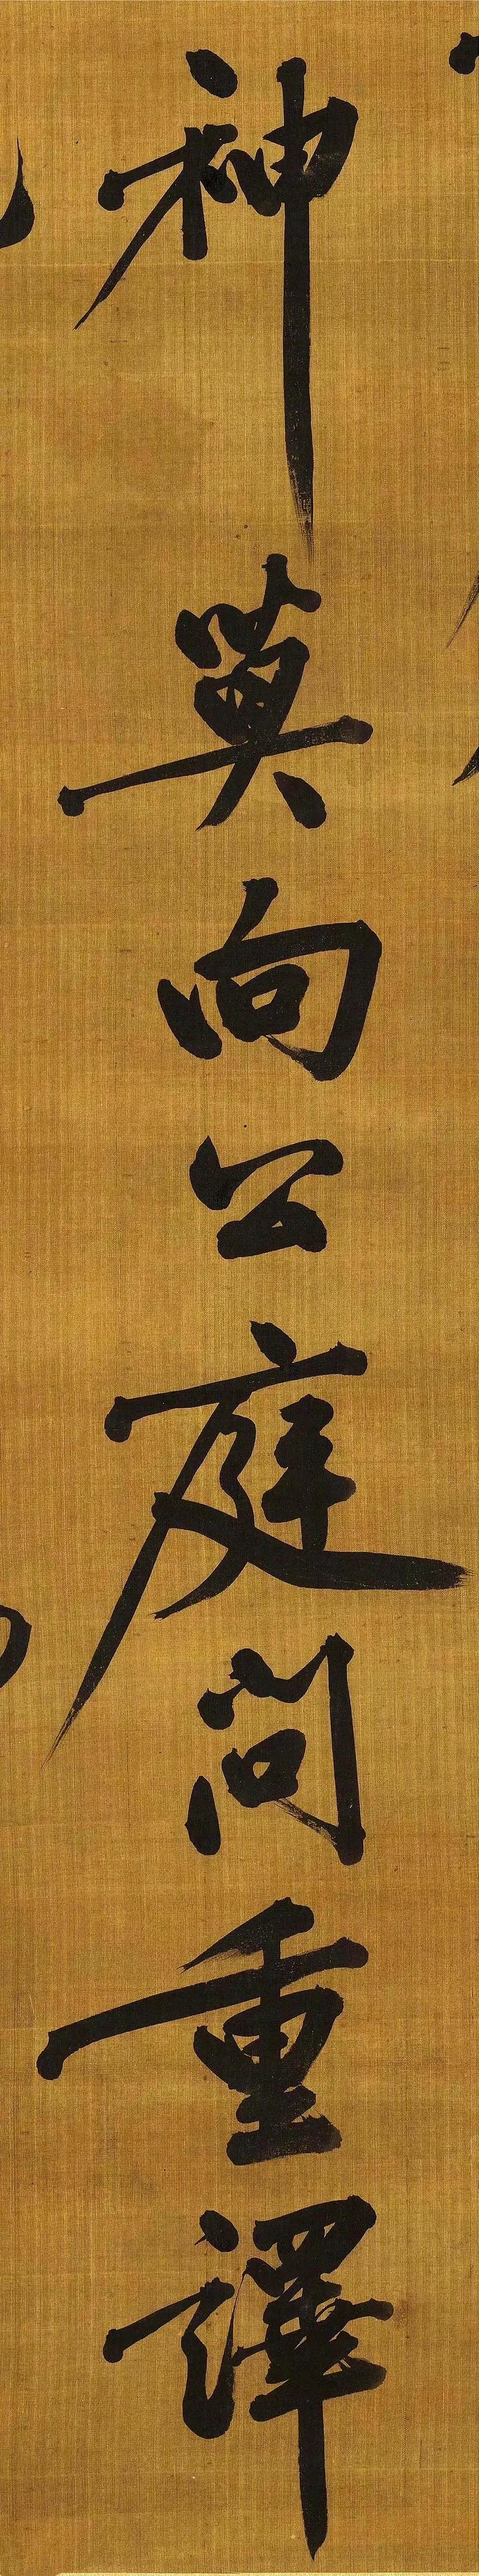 神莫向公庭问重譯